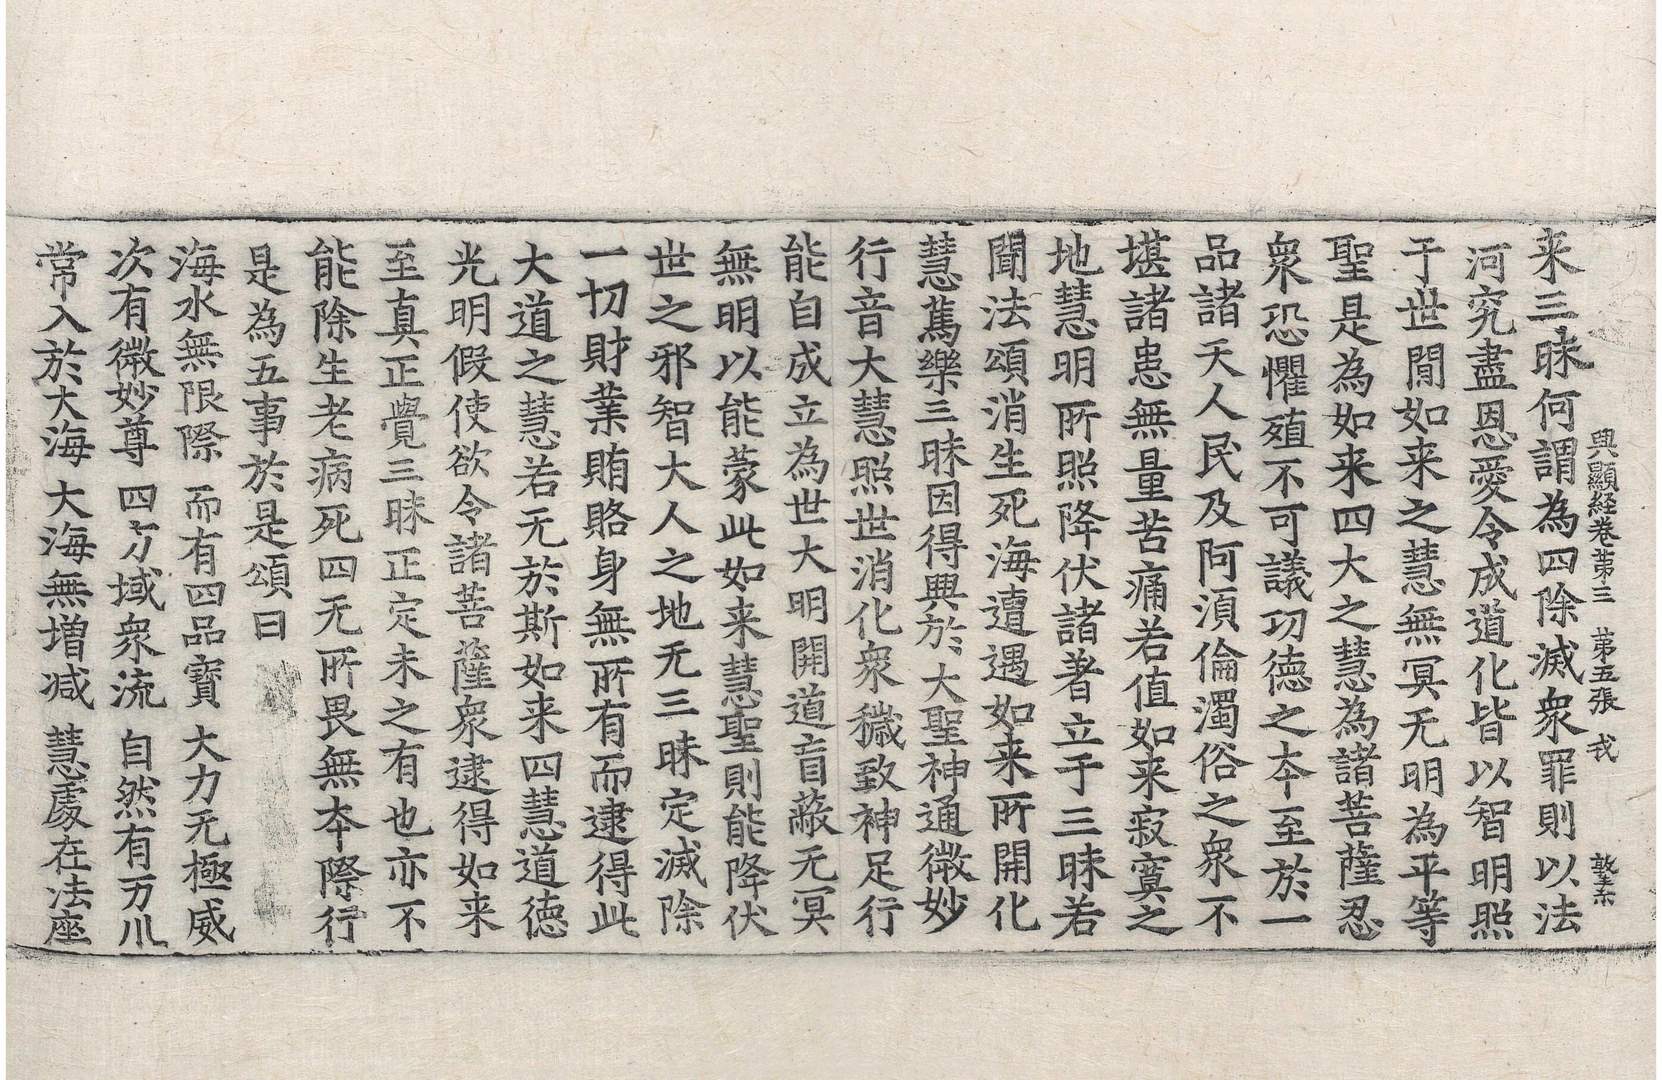 興顯経卷苐三 苐五張 戎
来三昧何謂為四除滅衆罪則以法
河究盡恩愛令成道化皆以智明照
于世間如来之慧無冥无明為平等
聖是為如来四大之慧為諸菩薩忍
衆恐懼殖不可議功德之夲至於一
品諸天人民及阿湏倫濁俗之衆不
堪諸患無量苦痛若值如来寂寞之
地慧明所照降伏諸著立于三昧若
聞法頌消生死海遭遇如来所開化
慧蔿樂三昧因得興於大聖神通微妙
行音大慧照世消化衆穢致神足行
能自成立為世大明開道盲蔽无冥
無明以能蒙此如来慧聖則能降伏
世之邪智大人之地无三昧定滅除
一切財業賄賂身無所有而逮得此
大道之慧若无於斯如来四慧道德
光明假使欲令諸菩薩衆逮得如来
至真正覺三昧正定未之有也亦不
能除生老病死四无所畏無夲際行
是為五事於是頌曰
海水無限際 而有四品寶 大力无極威
次有微妙尊 四方域衆流 自然有万川
常入於大海 大海無増减 慧處在法座